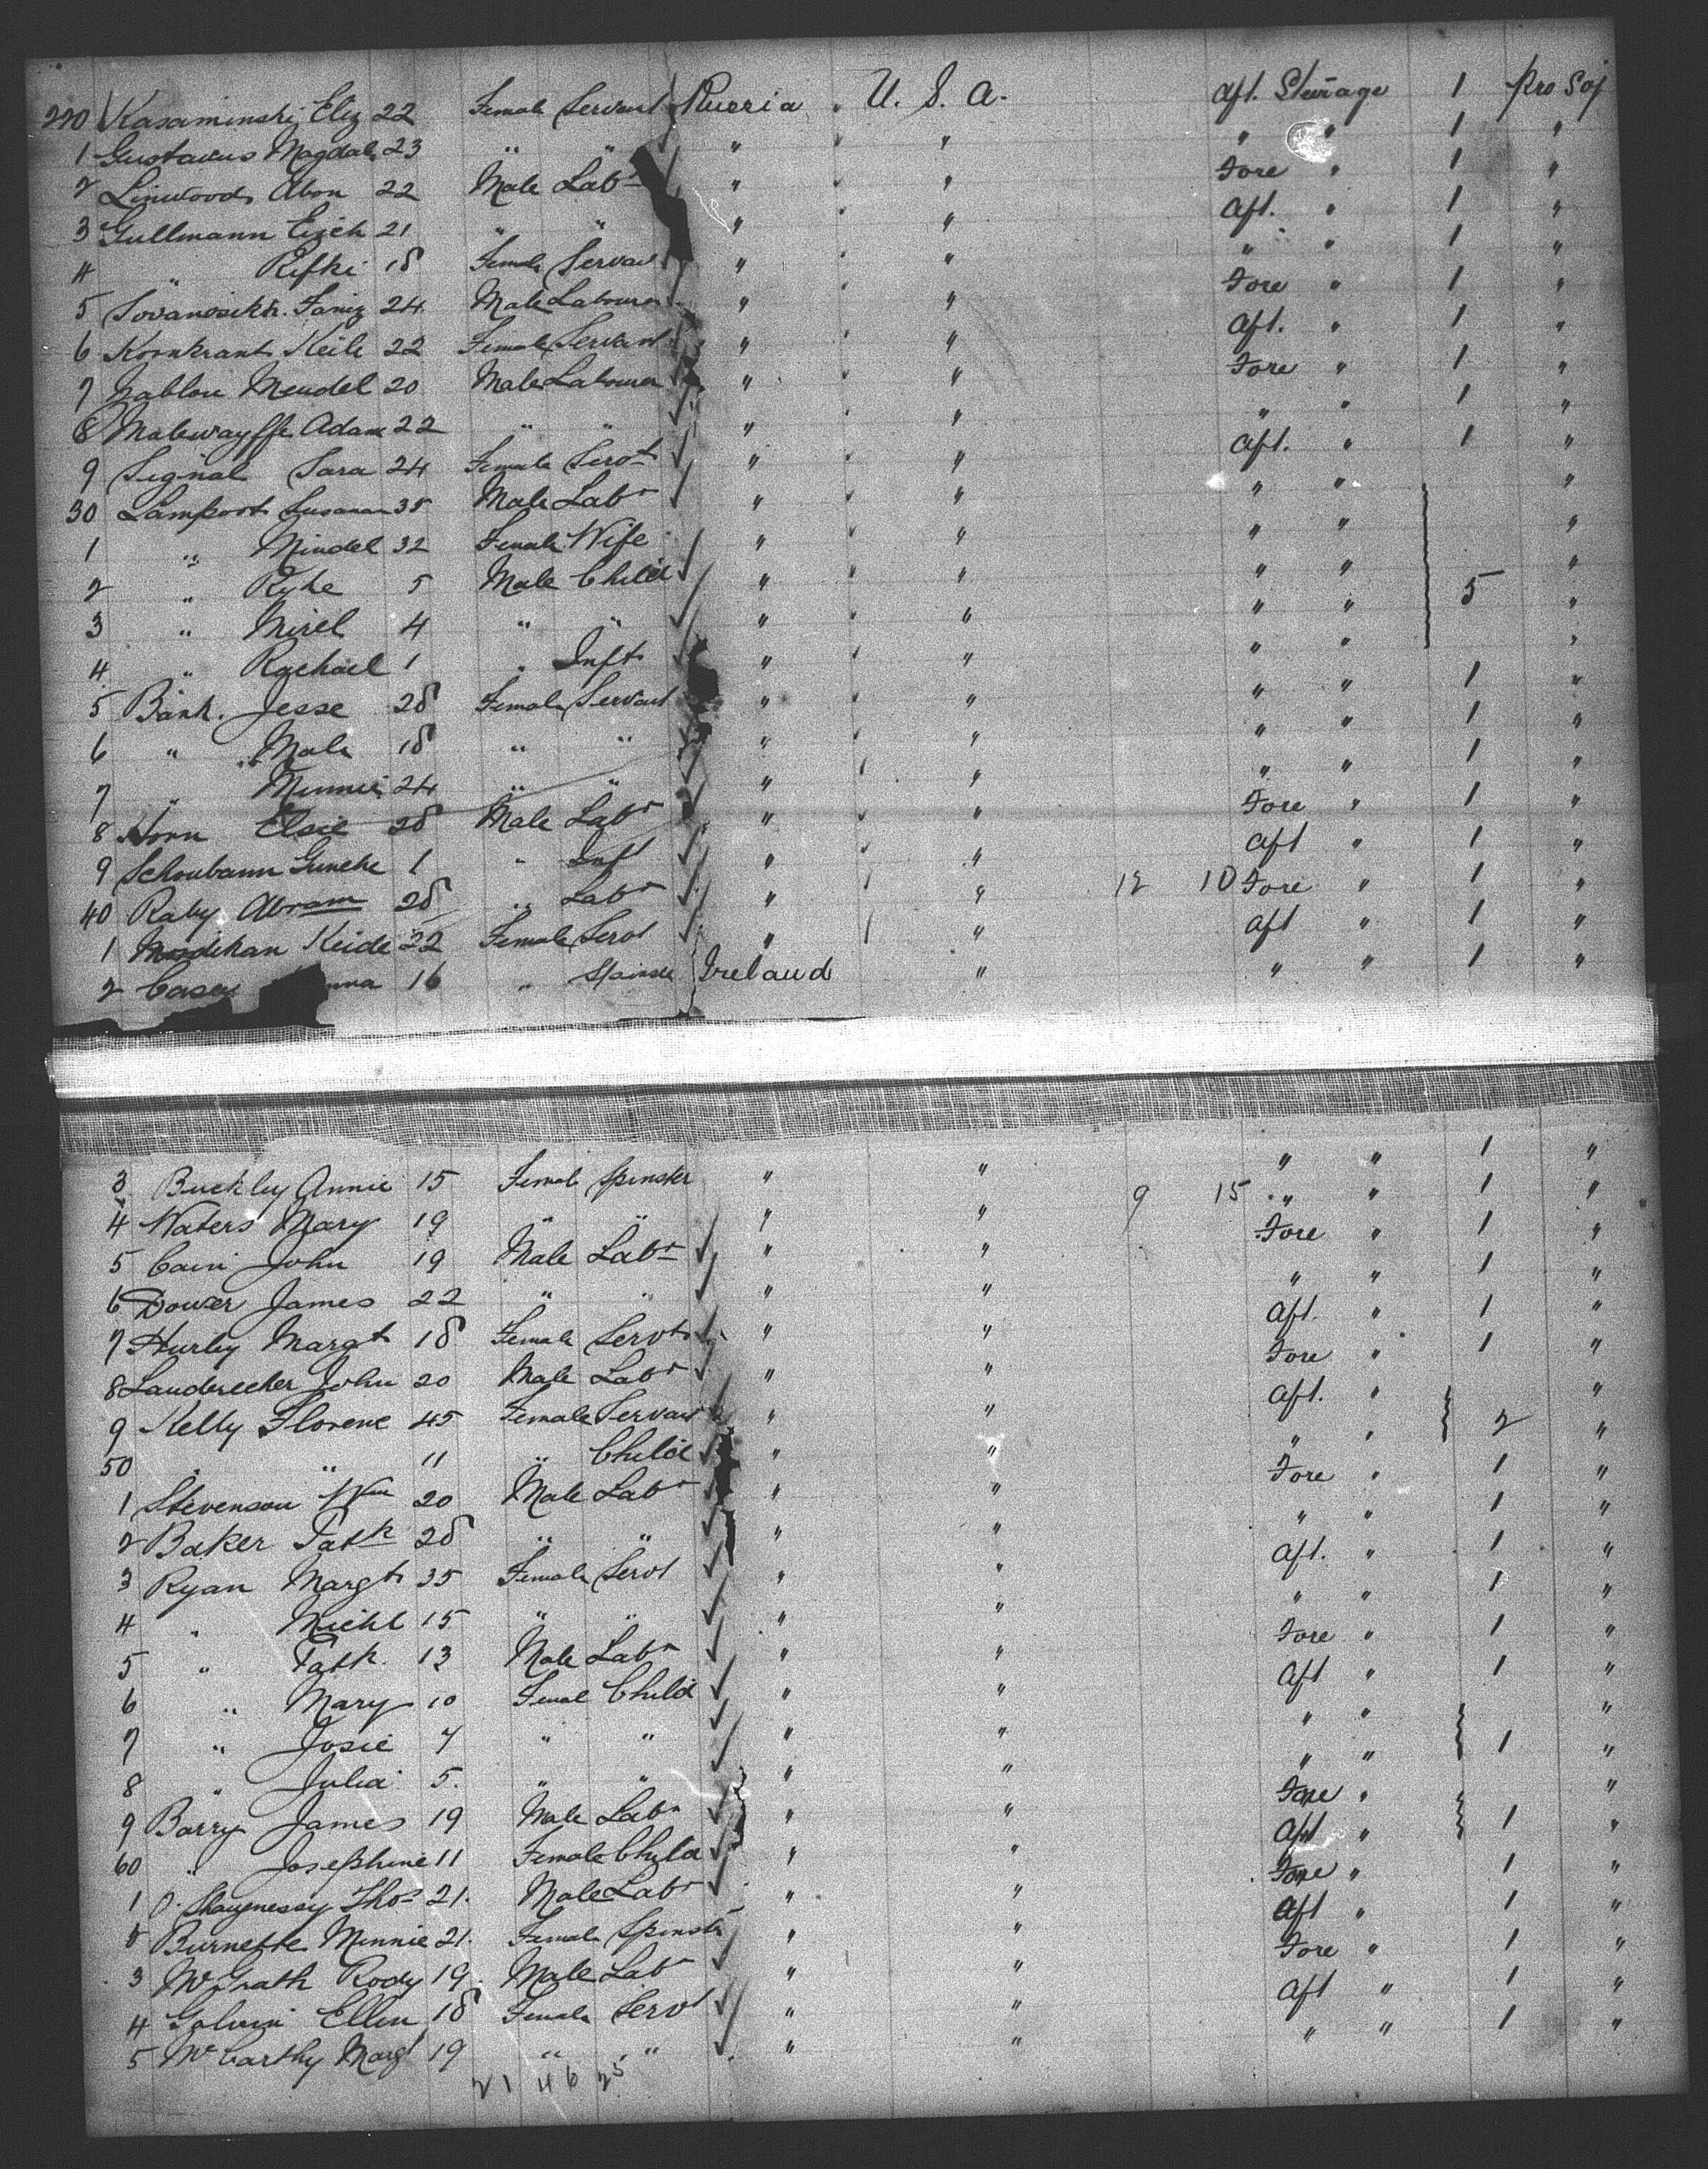 220 Kasaminski Eliz 22 Female Servant Russia " U. S. A. Aft. Steerage 1 Pro Soj
1 Gustavus Magdal 23 " " " " " " " 1 "
2 Linwood Abon 22 Male Labr " " " Fore " 1 "
3 Gullmann Eizek 21 " " " " " Aft. " 1 "
4 " Rifki 18 Female Servant " " " " " 1 "
5 24 Male Labourer " " " Fore " 1 "
6 Kornkrant Keile 22 Female Servant " " " Aft. " 1 "
7 Jablon Mendel 20 Male Labourer " " " Fore " 1 "
8 Adam 22 " " " " " " " 1 "
9 Signal Sara 24 Female Servt " " " Aft. " 1 "
30 Lamport 35 Male Labr " " " " " "
1 " Mindel 32 Female Wife " " " " " "
2 " Ryke 5 Male Child " " " " " 5 "
3 " Mirel 4 " " " " " " " "
4 " Rachael 1 " Inft " " " " " "
5 Bank. Jesse 28 Female Servant " " " " " 1 "
6 " Male 18 " " " " " " " 1 "
7 " Minnie 24 " " " " " " " 1 "
8 Horn Elsie 28 Male Labr " " " Fore " 1 "
9 Schoubann 1 " Inft " " " Aft " 1 "
40 Raby Abram 28 " Labr " " " 12 10 Fore " 1 "
1 Keide 22 Female Servt " " " Aft " 1 "
2 Casey nna 16 " Spinste Ireland " " " 1 "
3 Buckley Annie 15 Female Spinster " " " " 1 "
4 Waters Mary 19 " " " " 9 15 " " 1 "
5 Cain John 19 Male Labr " " Fore " 1 "
6 Dower James 22 " " " " " " 1 "
7 Hurley Margt 18 Female Servt " " Aft. " 1 "
8 John 20 Male Labr " " Fore " 1 "
9 Kelly Florence 45 Female Servant " " Aft. " 2 "
50 " " 11 " Child " " " " "
1 Stevenson Wm 20 Male Labr " " Fore " 1 "
2 Baker Patk 28 " " " " " " 1 "
3 Ryan Margt 35 Female Servt " " Aft. " 1 "
4 " Michl 15 " " " " " " 1 "
5 " Patk. 13 Male Labr " " Fore " 1 "
6 " Mary 10 Femal Child " " Aft " 1 "
7 " Josie 7 " " " " " " "
8 " Julia 5. " " " " " " 1 "
9 Barry James 19 Male Labr " " Fore " "
60 " Josephine 11 Female Child " " Aft " 1 "
1 O. Shaugnessy Thos 21. Male Labr " " Fore " 1 "
Burnette Minnie 21. Female Spinstr " " Aft " 1 "
3 McGrath Rody 19. Male Labr " " Fore " 1 "
4 Galvin Ellen 18 Female Servt " " Aft " 1 "
5 McCarthy Margt 19 " " " " " " 1 "
21 46 25